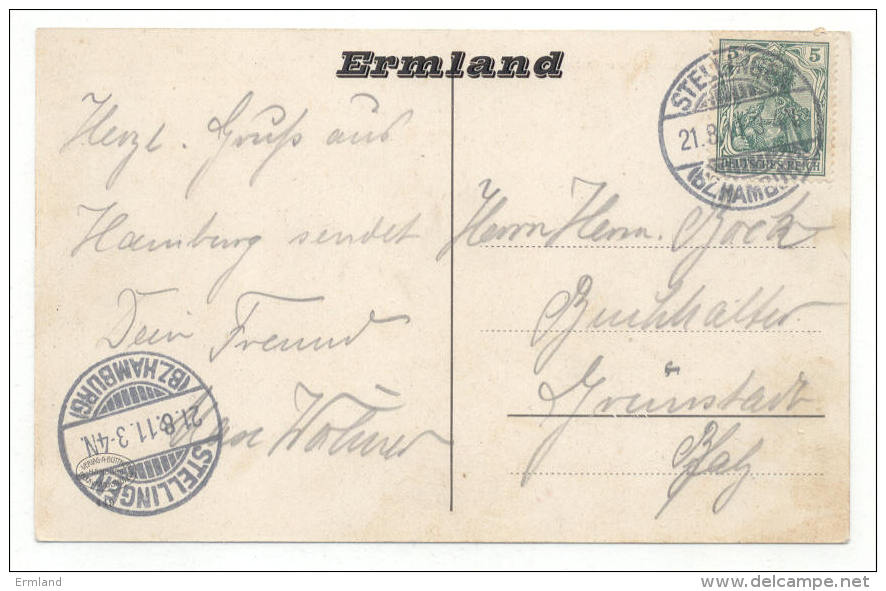 Ermland
Herzl. Gruß aus
Hamburg sendet
Dein Freund
Max
Herrn Herm. Bock
Buchhalter
Grünstadt
Pfalz
5
DEUTSCHES REICH
STELLINGEN
21.8.11
(BZ. HAMBURG)
STELLINGEN
21.8.11. 3-4N.
(BZ. HAMBURG)
Ermland
www.delcampe.net